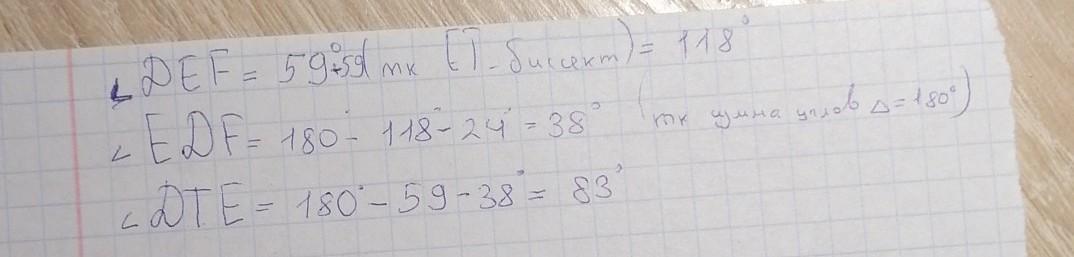 ∠DEF = 59°+59 (тк ET - биссект) = 118°
∠EDF = 180° - 118° - 24° = 38° (тк сумма углов Δ = 180°)
∠DTE = 180° - 59 - 38° = 83°